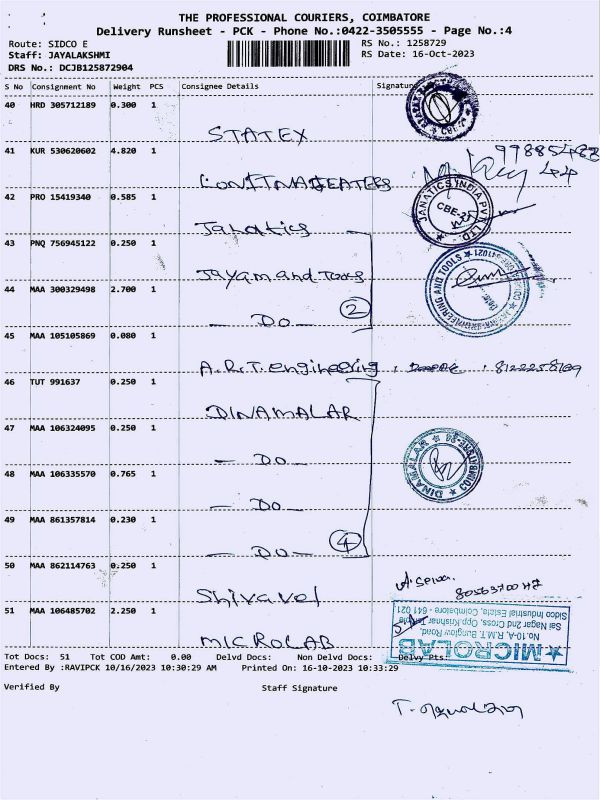 THE PROFESSIONAL COURIERS, COIMBATORE
Delivery Runsheet - PCK - Phone No.:0422-3505555 - Page No.:4
Route: SIDCO E RS No.: 1258729
Staff: JAYALAKSHMI RS Date: 16-Oct-2023
DRS No.: DCJB125872904
S No Consignment No Weight PCS Consignee Details Signature
40 HRD 305712189 0.300 1
STATEX
41 KUR 530620602 4.820 1
42 PRO 15419340 0.585 1
JANATICS INDIA PVT. LTD.
CBE-21
Janatics
43 PNQ 756945122 0.250 1
Jayam and Tools
44 MAA 300329498 2.700 1
- DO - 2
45 MAA 105105869 0.080 1
A.R.T. engineering
46 TUT 991637 0.250 1
DINAMALAR
47 MAA 106324095 0.250 1
- DO -
DINAMALAR
48 MAA 106335570 0.765 1
- DO -
49 MAA 861357814 0.230 1
- DO - 4
50 MAA 862114763 0.250 1
Shivavel
51 MAA 106485702 2.250 1
MICROLAB
MICROLAB
No.10-A, R.M.T. Bunglow Road,
Sai Nagar 2nd Cross, Opp Krishnar Temple
Sidco Industrial Estate, Coimbatore - 641 021
Tot Docs: 51 Tot COD Amt: 0.00 Delvd Docs: Non Delvd Docs: Delvy Pts:
Entered By :RAVIPCK 10/16/2023 10:30:29 AM Printed On: 16-10-2023 10:33:29
Verified By Staff Signature